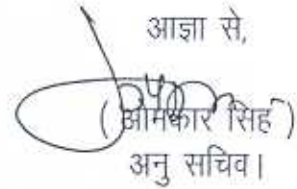 आज्ञा से,
( ओमकार सिंह )
अनु सचिव।